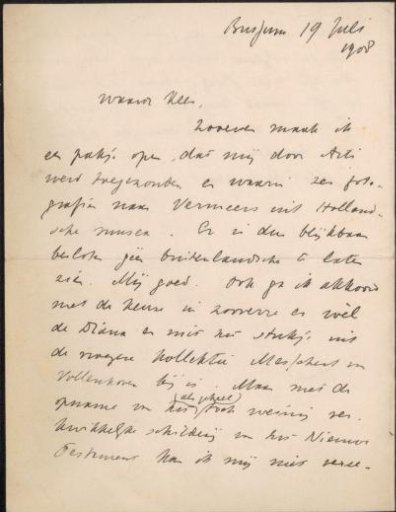 Bussum 19 Juli
1908
Waarde Heer,
Zooeven maak ik
een pakje open, dat mij door Arti
werd toegezonden en waarin zes foto-
grafiën naar Vermeers uit Holland-
sche musea. Er is dus blijkbaar
besloten géén buitenlandsche te laten
zien. Mij goed. Ook ga ik akkoord
met de keuze in zooverre er wèl
de Diana en niet het stukje uit
de vroegere kollektie Messchert van
Vollenhoven bij is. Maar met de
opname van het (als geheel) toch weinig ver-
kwikkelijke schilderij van het Nieuwe
Testament kan ik mij niet veree-